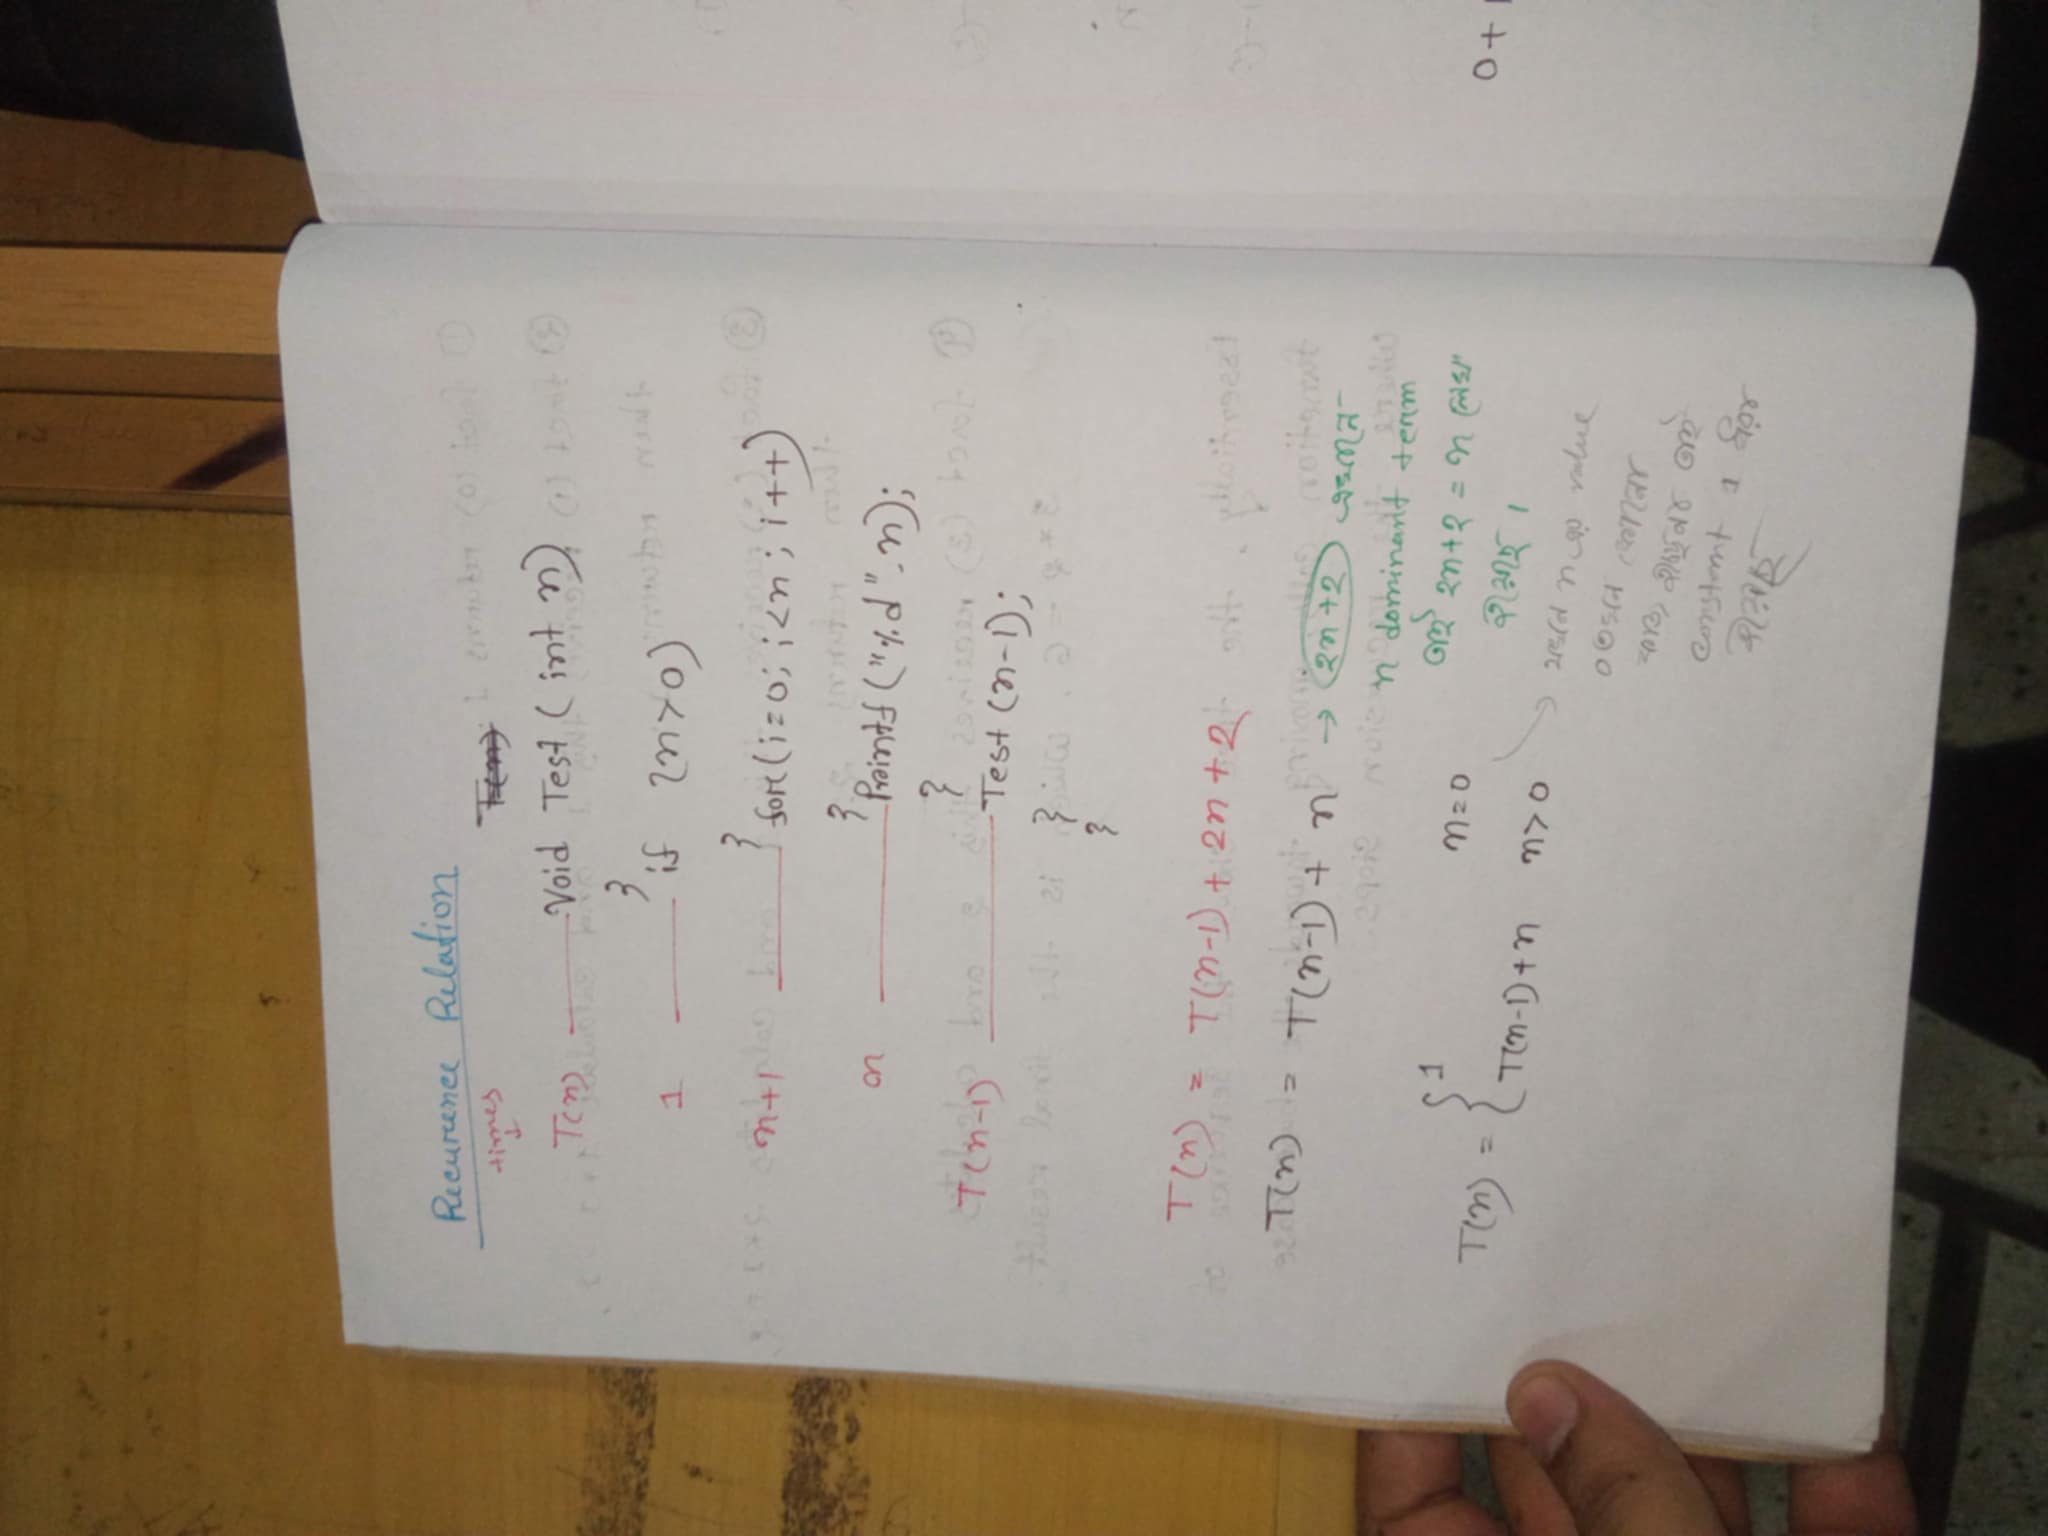 Recurrence Relation
times
↓
T(n)
T(n) Void Test (int n)
{
1 if (n>0)
{
n+1 for (i=0; i<n; i++)
{
n Printf ("%d", n);
}
T(n-1) Test (n-1);
}
}
T(n) = T(n-1) + 2n + 2
T(n) = T(n-1) + n → 2n+2 এখানে
n dominant term
তাই 2n+2 = n লেখা
হয়েছে।
T(n) = { 1 n=0
T(n-1)+n n>0
যখন n এর value
0 তখন কোনো
কাজ হচ্ছেনা তাই
constant 1 ধরা
হয়েছে
0+